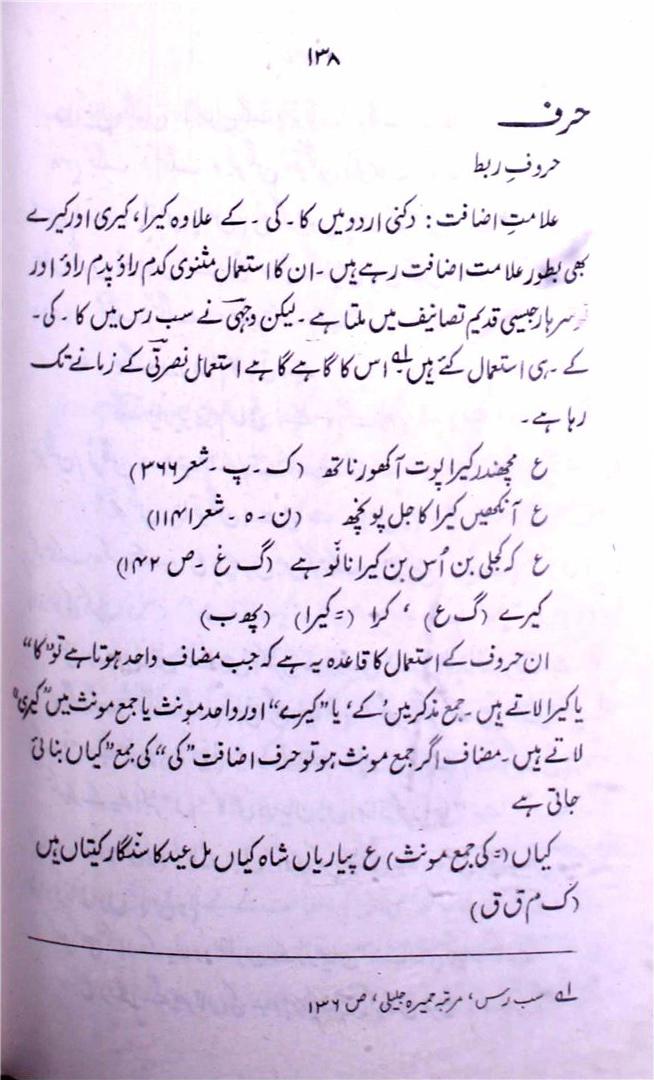 ۱۳۸
حرف
حروفِ ربط
علامتِ اضافت : دکنی اردو میں کا ۔ کی ۔ کے علاوہ کیرا ، کیری اور کیرے
بھی بطور علامت اضافت رہے ہیں ۔ ان کا استعمال مثنوی کدم راؤ پدم راؤ اور
نوسرہار جیسی قدیم تصانیف میں ملتا ہے ۔ لیکن وجہیؔ نے سب رس میں کا ۔ کی ۔
کے ۔ ہی استعمال کئے ہیں لے اس کا گاہے گاہے استعمال نصرتیؔ کے زمانے تک
رہا ہے ۔
ع مچھندر کیرا پوت آکھور ناتھ (ک ۔ پ ۔ شعر ۳۶۶)
ع آنکھیں کیرا کاجل پونچھ (ن ۔ ہ ۔ شعر ۱۱۴۱)
ع کہ کجلی بن اُس بن کیرا نانو ہے (گ غ ۔ ص ۱۴۲)
کیرے (گ ع) ، کرا (= کیرا) (پھ ب)
ان حروف کے استعمال کا قاعدہ یہ ہے کہ جب مضاف واحد ہوتا ہے تو "کا"
یا کیرا لاتے ہیں ۔ جمع مذکر میں 'کے' یا "کیرے" اور واحد مونث یا جمع مونث میں "کیری"
لاتے ہیں ۔ مضاف اگر جمع مونث ہو تو حرف اضافت "کی" کی جمع "کیاں بنائی
جاتی ہے
کیاں (= کی جمع مونث) ع پیاریاں شاہ کیاں مل عید کا سنگار کیتاں ہیں
(ک م ق ق)
لے سب رس ، مرتبہ حمیرہ جلیلی ، ص ۱۳۶